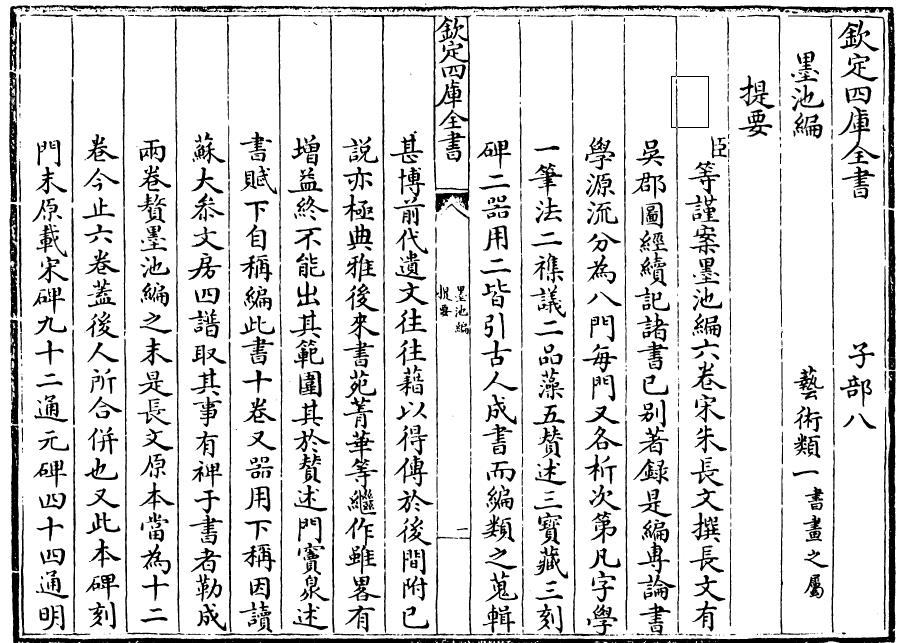 欽定四庫全書　子部八
墨池編　藝術類一書畫之屬
提要
臣等謹案墨池編六卷宋朱長文撰長文有
吳郡圖經續記諸書已别著録是編專論書
學源流分為八門每門又各析次第凡字學
一筆法二襍議二品藻五賛述三寶藏三刻
碑二器用二皆引古人成書而編類之蒐輯
欽定四庫全書
墨池編
提要
一
甚博前代遺文往往藉以得傳於後間附已
説亦極典雅後來書苑菁華等繼作雖畧有
增益終不能出其範圍其於賛述門竇泉述
書賦下自稱編此書十卷又器用下稱因讀
蘇大叅文房四譜取其事有裨于書者勒成
兩卷贅墨池編之末是長文原本當為十二
卷今止六卷蓋後人所合併也又此本碑刻
門末原載宋碑九十二通元碑四十四通明